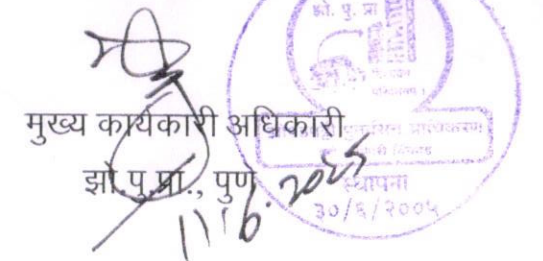 झो. पु. प्रा
मुख्य कार्यकारी अधिकारी
झो.पु.प्रा., पुणे
11.6.2025
स्थापना
३०/६/२००५